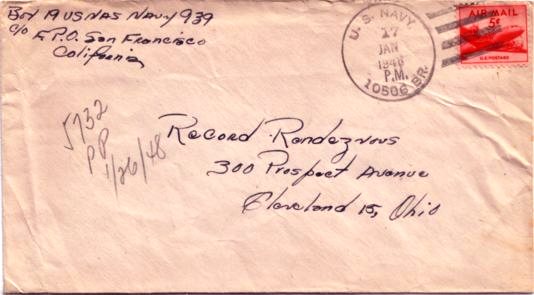 Box A USNAS Navy 939
c/o F.P.O. San Francisco
California
U.S. NAVY
17
JAN
1948
P.M.
10506 BR.
AIR MAIL
5¢
U.S. POSTAGE
5732
PP
1/26/48
Record Rendezvous
300 Prospect Avenue
Cleveland 15, Ohio